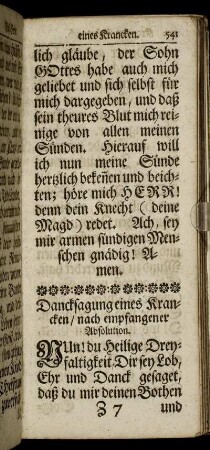 eines Krancken. 541
lich gläube, der Sohn
GOttes habe auch mich
geliebet und sich selbst für
mich dargegeben, und daß
sein theures Blut mich rei-
nige von allen meinen
Sünden. Hierauf will
ich nun meine Sünde
hertzlich bekeñen und beich-
ten; höre mich HERR!
denn dein Knecht (deine
Magd) redet. Ach, sey
mir armen sündigen Men-
schen gnädig! A-
men.
Dancksagung eines Kran-
cken/ nach empfangener
Absolution.
NUn! du Heilige Drey-
faltigkeit, Dir sey Lob,
Ehr und Danck gesaget,
daß du mir deinen Bothen
Z 7 und